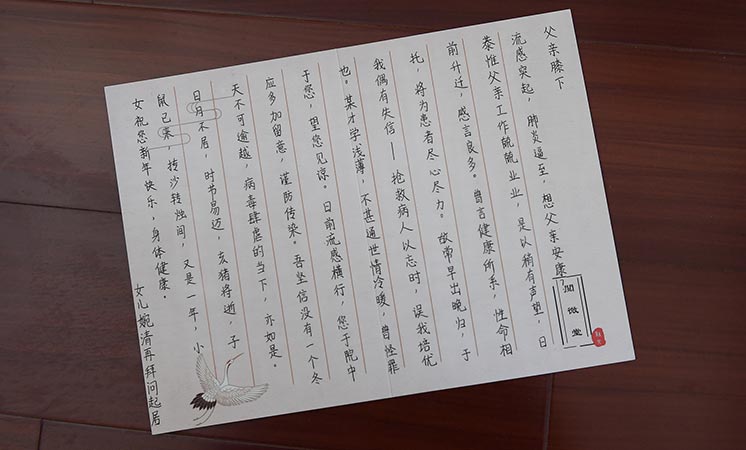 父亲膝下
流感突起，肺炎逼至，想父亲安康，
泰惟父亲工作兢兢业业，是以稍有声望，日
前升迁，感言良多。曾言健康所系，性命相
托，将为患者尽心尽力。故常早出晚归，于
我偶有失信——抢救病人以忘时，误我培优
也。某才学浅薄，不甚通世情冷暖，曾怪罪
于您，望您见谅。日前流感横行，您于院中
应多加留意，谨防传染。吾坚信没有一个冬
天不可逾越，病毒肆虐的当下，亦如是。
日月不居，时节易迈，亥猪将逝，子
鼠已来，抟沙转烛间，又是一年，小
女祝您新年快乐，身体健康。
女儿婉清再拜问起居
阅微堂